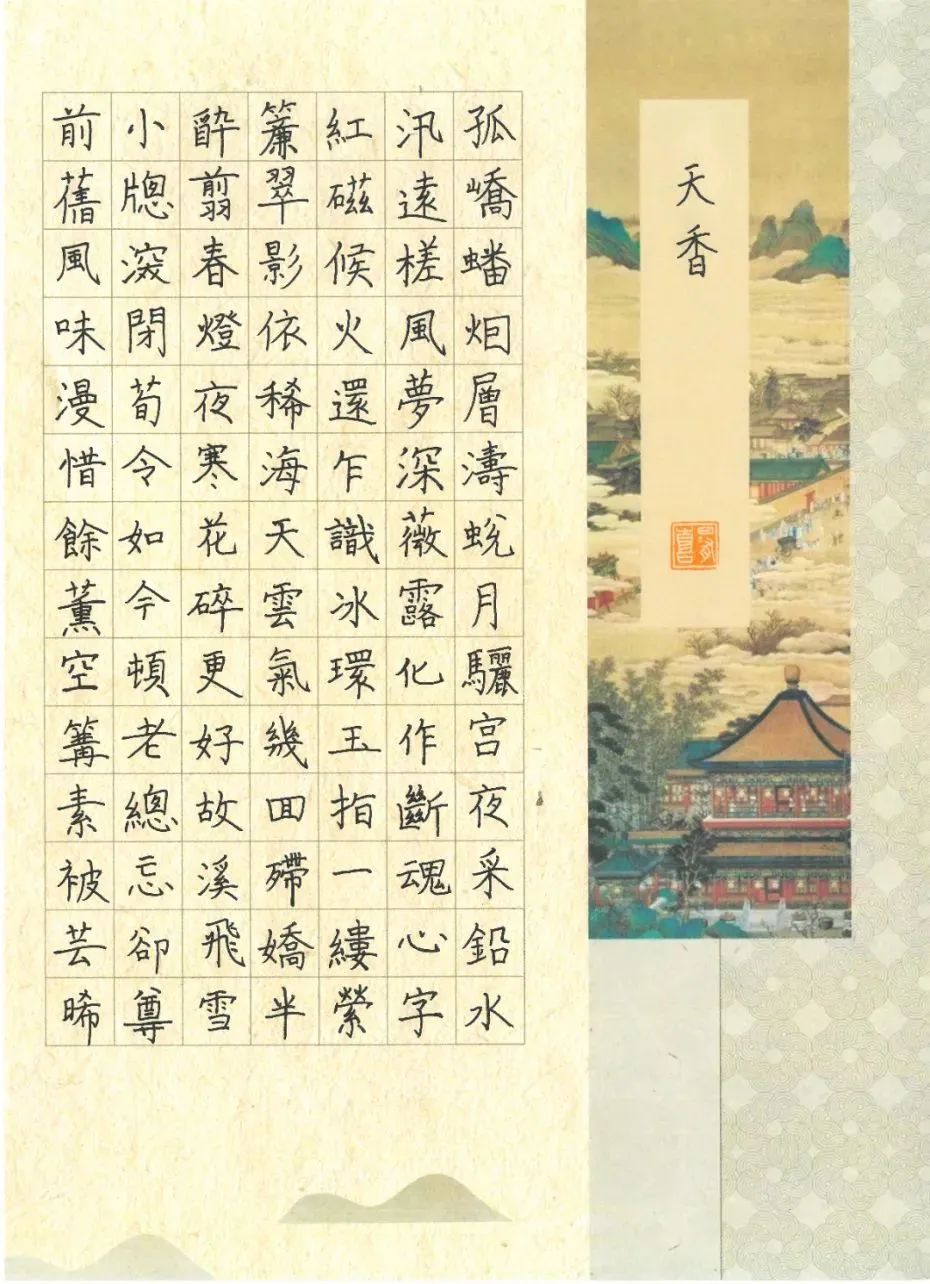 天香
孤嶠蟠烟層濤蛻月驪宫夜采鉛水
汛遠槎風夢深薇露化作斷魂心字
紅磁候火還乍識冰環玉指一縷縈
簾翠影依稀海天雲氣幾回殢嬌半
酔翦春燈夜寒花碎更好故溪飛雪
小牕深閉荀令如今頓老總忘卻尊
前舊風味漫惜餘薰空篝素被芸晞